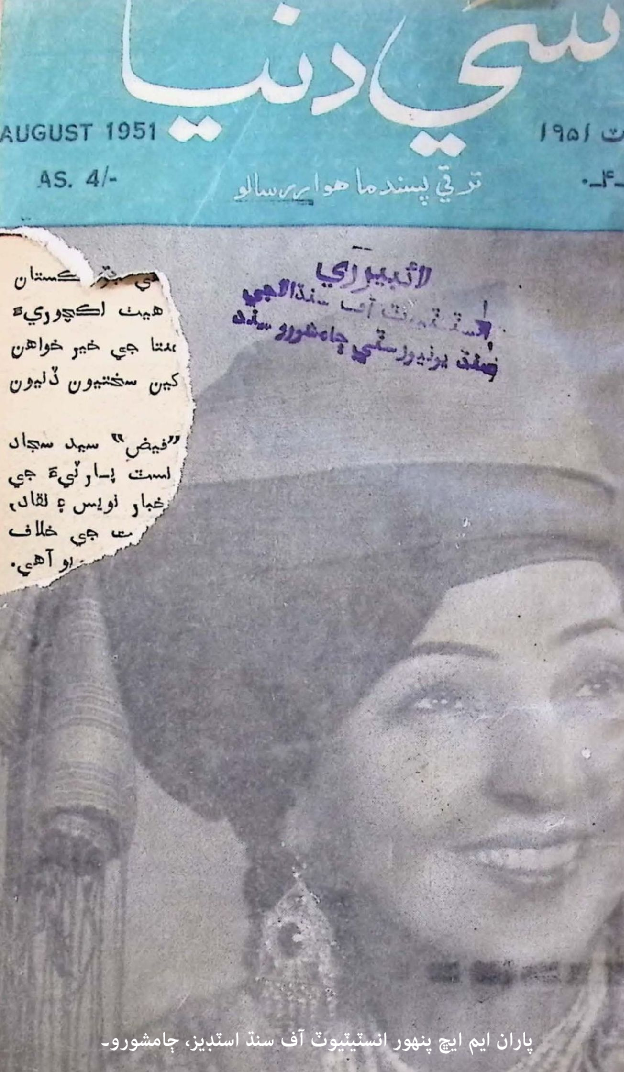 سي دنيا
AUGUST 1951
ت ۱۹۵۱
AS. 4/-
ترقي پسند ماهوار رسالو
لائبريري
انسٽيٽيوٽ آف سنڌالاجي
سنڌ يونيورسٽي ڄامشورو سنڌ
ڪستان
هيٺ اڪچوريءَ
جي خير خواهن
کين سختيون ڏنيون
“فيض” سيد سجاد
پارٽيءَ جي
خبار نويس ۽ نقاد،
ت جي خلاف
يو آهي.
پاران ايم ايڇ پنهور انسٽيٽيوٽ آف سنڌ اسٽڊيز، ڄامشورو۔